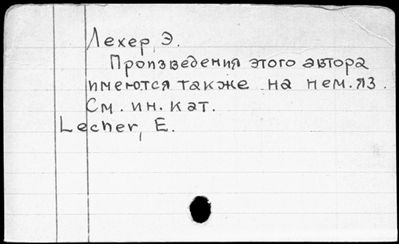 Лехер, Э.
Произведения этого автора
имеются также на нем. яз.
См. ин. кат.
Lecher, E.